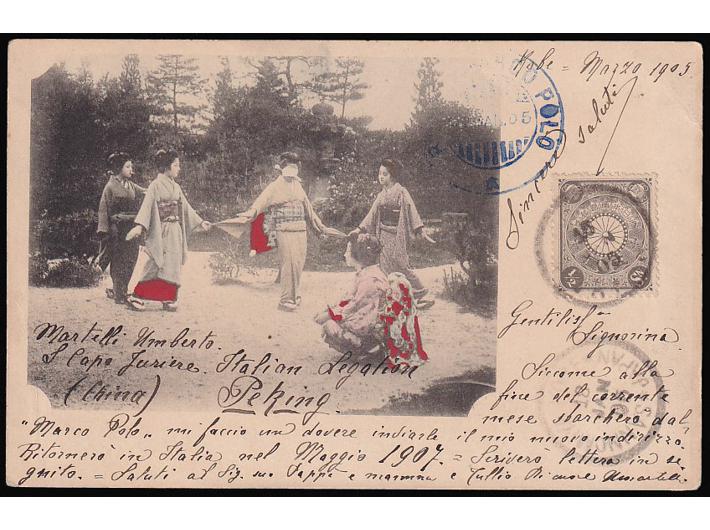 Kobe = Marzo 1905
Sinceri saluti
MARCO POLO
½ SN
Gentiliss.
Signorina.
Martelli Umberto.
S. Capo Furiere. Italian Legation
(China) Peking
Siccome alla
fine del corrente
mese sbarcherò dal
"Marco Polo„ mi faccio un dovere indicarle il mio nuovo indirizzo.
Ritornerò in Italia nel Maggio 1907. = Scriverò lettera in se
guito. = Saluti al Sig. suo Pappà e mamma e Tullio